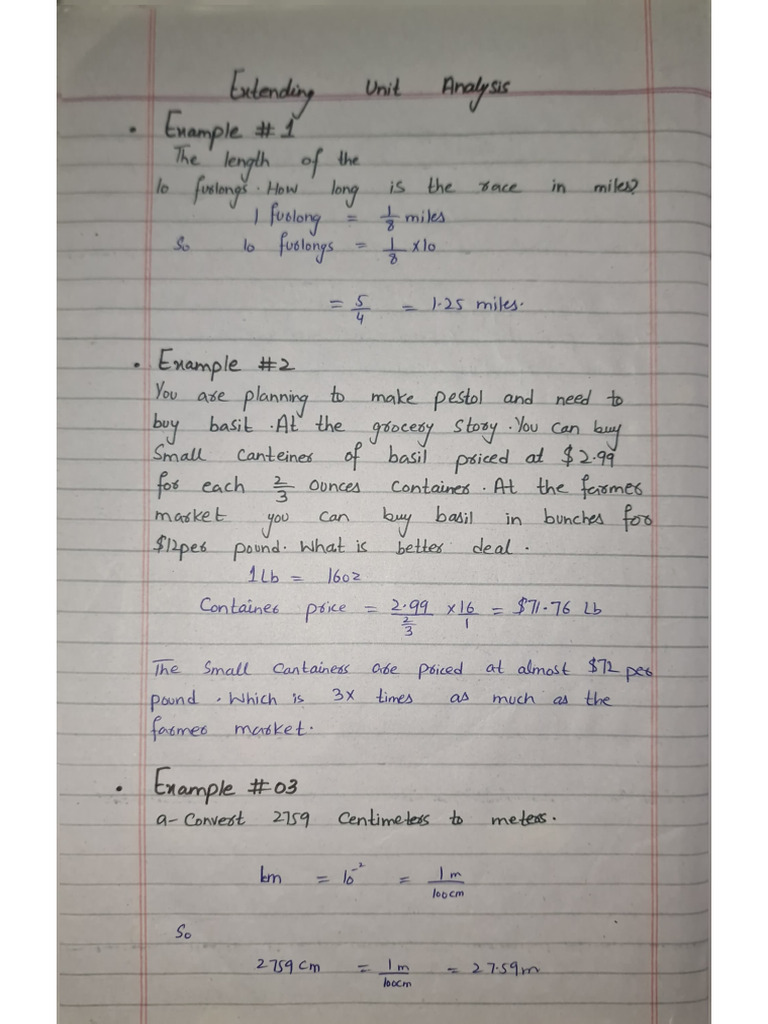 Extending Unit Analysis
• Example # 1
The length of the
10 furlongs. How long is the race in miles?
1 furlong = 1/8 miles
So 10 furlongs = 1/8 x10
= 5/4 = 1.25 miles.
• Example #2
You are planning to make pestol and need to
buy basit. At the grocery story. You can buy
Small canteiner of basil priced at $2.99
for each 2/3 ounces container. At the farmer
market you can buy basil in bunches for
$12per pound. What is better deal.
1Lb = 16oz
Container price = 2.99/(2/3) x 16/1 = $71.76 Lb
The Small Cantainers are priced at almost $72 per
pound. Which is 3x times as much as the
farmer market.
• Example #03
a- Convert 2759 Centimeters to meters.
km = 10^-2 = 1m/100cm
So
2759 cm = 1m/100cm = 27.59m